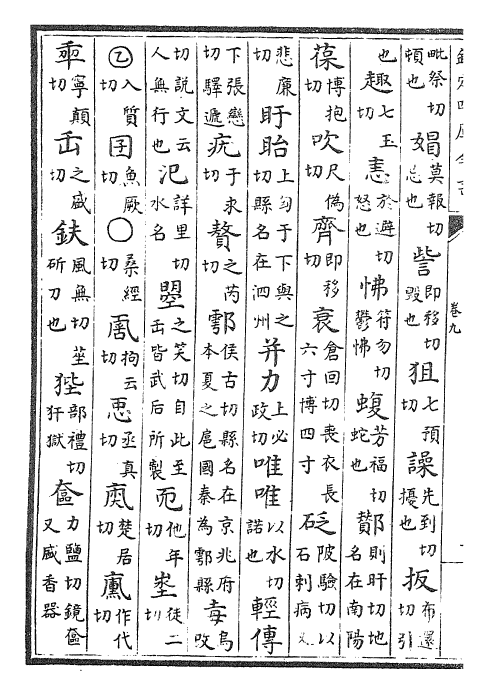 欽定四庫全書 卷九
毗祭切頓也 媢莫報切忌也 訾即移切毀也 狙七預切 譟先到切擾也 扳布還切引
也 趣七玉切 恚於避切怒也 怫符勿切鬱怫 蝮芳福切蛇也 酇則旰切地名在南陽
葆博抱切 吹尺偽切 齊即移切 衰倉回切喪衣長六寸博四寸 砭陂驗切以石刺病又
悲廉切 盱眙上匈于下與之切縣名在泗州 并力上必政切 唯唯以水切諾也 輕傳
下張戀切驛遞 疣于求切 贅之芮切 鄠侯古切縣名在京兆府本夏之扈國秦為鄠縣 毐烏攺
切說文云人無行也 汜詳里切水名 曌之笑切自此至𠙺皆武后所製 𠀑他年切 埊徒二切
𡆠入質切 囝魚厥切 〇桑經切 拘云切 丞真切 楚居切 作代切
寧顛切 𠙺之盛切 鈇風無切莝斫刀也 狴部禮切犴獄 奩力鹽切鏡奩又盛香器